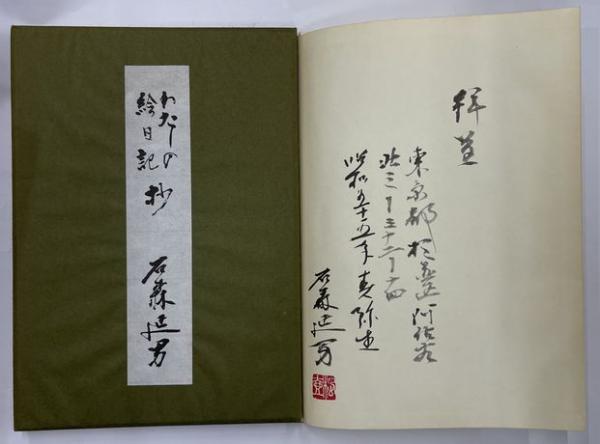 わたしの
絵日記 抄
石森延男
拝呈
東京都杉並区阿佐谷
北三丁三十二ノ十四
昭和五十五年春弥生
石森延男